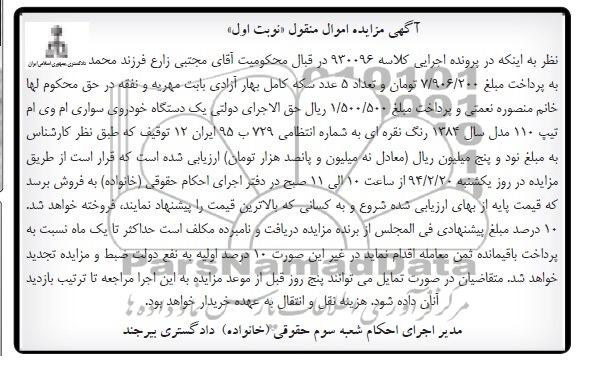 آگهی مزایده اموال منقول «نوبت اول»
دادگستری جمهوری اسلامی ایران
نظر به اینکه در پرونده اجرایی کلاسه ۹۳۰۰۹۶ در قبال محکومیت آقای مجتبی زارع فرزند محمد
به پرداخت مبلغ ۷/۹۰۶/۲۰۰ تومان و تعداد ۵ عدد سکه کامل بهار آزادی بابت مهریه و نفقه در حق محکوم لها
خانم منصوره نعمتی و پرداخت مبلغ ۱/۵۰۰/۵۰۰ ریال حق الاجرای دولتی یک دستگاه خودروی سواری ام وی ام
تیپ ۱۱۰ مدل سال ۱۳۸۴ رنگ نقره ای به شماره انتظامی ۷۲۹ ب ۹۵ ایران ۱۲ توقیف که طبق نظر کارشناس
به مبلغ نود و پنج میلیون ریال (معادل نه میلیون و پانصد هزار تومان) ارزیابی شده است که قرار است از طریق
مزایده در روز یکشنبه ۹۴/۲/۲۰ از ساعت ۱۰ الی ۱۱ صبح در دفتر اجرای احکام حقوقی (خانواده) به فروش برسد
که قیمت پایه از بهای ارزیابی شده شروع و به کسانی که بالاترین قیمت را پیشنهاد نمایند، فروخته خواهد شد.
۱۰ درصد مبلغ پیشنهادی فی المجلس از برنده مزایده دریافت و نامبرده مکلف است حداکثر تا یک ماه نسبت به
پرداخت باقیمانده ثمن معامله اقدام نماید در غیر این صورت ۱۰ درصد اولیه به نفع دولت ضبط و مزایده تجدید
خواهد شد. متقاضیان در صورت تمایل می توانند پنج روز قبل از موعد مزایده به این اجرا مراجعه تا ترتیب بازدید
آنان داده شود. هزینه نقل و انتقال به عهده خریدار خواهد بود.
مدیر اجرای احکام شعبه سوم حقوقی (خانواده) دادگستری بیرجند
ParsNamadData
مرکز فرآوری اطلاعات پارس نماد داده ها